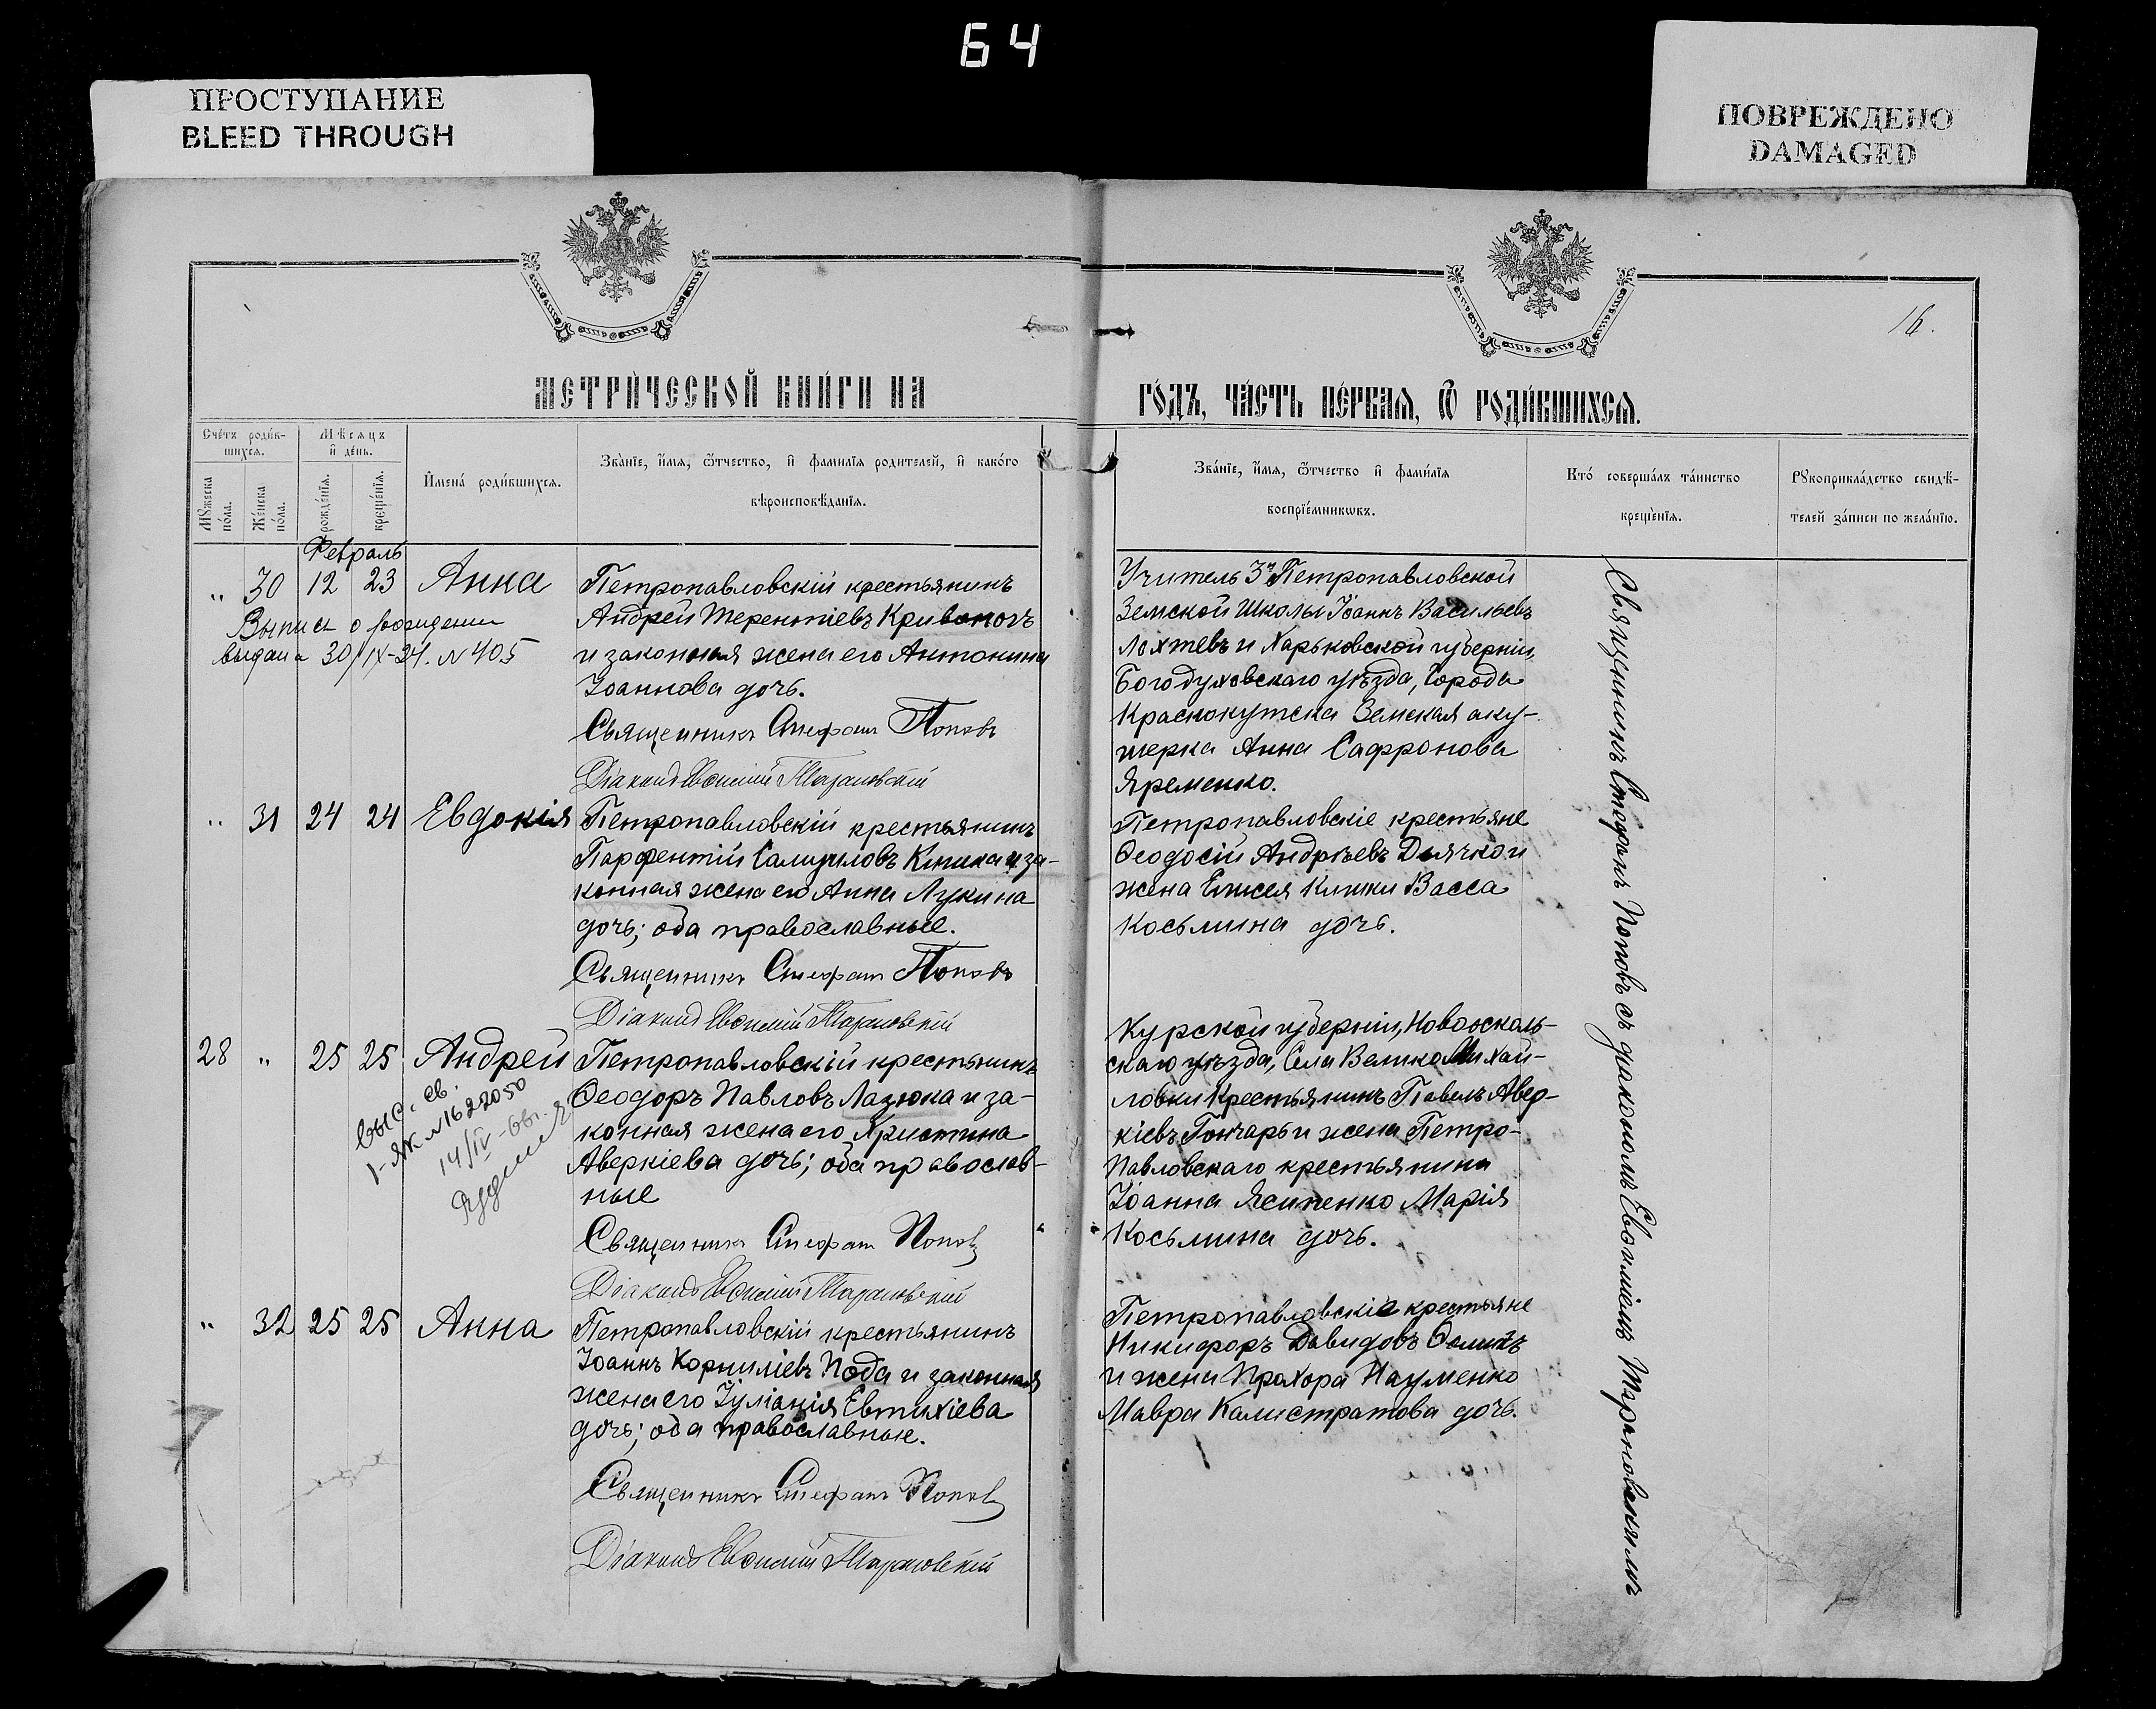 64
ПРОСТУПАНИЕ
BLEED THROUGH
ПОВРЕЖДЕНО
DAMAGED
16.
МЕТРИ́ЧЕСКОЙ КНИ́ГИ НА
ГО́ДЪ, ЧА́СТЬ ПЕ́РВАЯ, Ѿ РОДИ́ВШИХСЯ.
Сче́тъ роди́в-
шихся.
Мѣсяцъ
и҆ де́нь.
Мꙋжеска
по́ла.
Же́нска
по́ла.
рожде́нїя.
креще́нїя.
И҆мена́ роди́вшихся.
Зва́нїе, и҆́мя, ѿтчество, и҆ фами́лїя родителей, и҆ како́го
вѣроисповѣ́данїя.
Зва́нїе, и҆́мя, ѿтчество и҆ фами́лїя
воспрїе́мникωвъ.
Кто́ соверша́лъ та́инство
креще́нїя.
Рꙋкоприкла́дство свидѣ́-
телей за́писи по жела́нїю.
Февраль
" 30 12 23 Анна
Выпись о рождении
выдана 30/IX-34. N 405
Петропавловскій крестьянинъ
Андрей Терентіевъ Кривоногъ
и законная жена его Антонина
Іоаннова дочь.
Священникъ Стефанъ Поповъ
Діаконъ Евѳимій Тарановскій
Учитель 3й Петропавловской
Земской Школы Іоаннъ Васильевъ
Лохтевъ и Харьковской губерніи,
Богодуховскаго уѣзда, Города
Краснокутска Земская аку-
шерка Анна Сафронова
Яременко.
" 31 24 24 Евдокія
Петропавловскій крестьянинъ
Парфентій Самуиловъ Клика и за-
конная жена его Анна Лукина
дочь; оба православные.
Священникъ Стефанъ Поповъ
Діаконъ Евѳимій Тарановскій
Петропавловскіе крестьяне
Ѳеодосій Андрѣевъ Дьячко и
жена Елисея Васса
Косьмина дочь.
28 " 25 25 Андрей
выд. св.
I-ЯК N 1622050
14/IV
Петропавловскій крестьянинъ
Ѳеодоръ Павловъ Лазюка и за-
конная жена его Христина
Аверкіева дочь; оба православ-
ные
Священникъ Стефанъ Поповъ
Діаконъ Евѳимій Тарановскій
Курской губерніи, Новоосколь-
скаго уѣзда, Села ВеликоМихай-
ловки Крестьянинъ Павелъ Авер-
кіевъ Гончаръ и жена Петро-
павловскаго крестьянина
Іоанна Ясипенко Марія
Косьмина дочь.
" 32 25 25 Анна
Петропавловскій крестьянинъ
Іоаннъ Корниліевъ Пода и законная
жена его Іуліанія Евтихіева
дочь; оба православные.
Священникъ Стефанъ Поповъ
Діаконъ Евѳимій Тарановскій
Петропавловскіе крестьяне
Никифоръ Давидовъ
и жена Прохора Науменко
Мавра Калистратова дочь.
Священникъ Стефанъ Поповъ съ діакономъ Евѳиміемъ Тарановскимъ